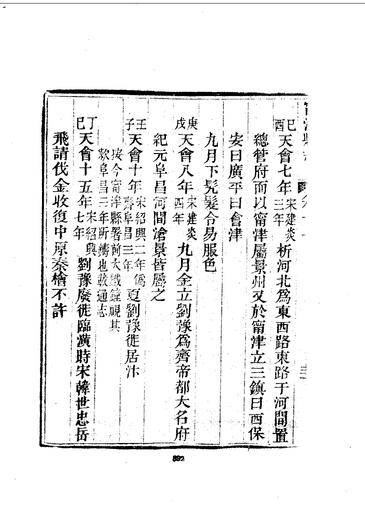 己酉天會七年宋建炎三年析河北爲東西路東路于河間置
總管府而以甯津屬景州又於甯津立三鎮曰西保
安曰廣平曰會津
九月下髠髮令易服色
庚戌天會八年宋建炎四年九月金立劉豫爲齊帝都大名府
紀元阜昌河間滄景皆屬之
壬子天會十年宋紹興二年僞齊阜昌三年夏劉豫徙居汴
按今甯津縣署前大鐵鐘視其
款阜昌三年所鑄也載通志
丁巳天會十五年宋紹興七年劉豫廢徙臨潢時宋韓世忠岳
飛請伐金收復中原秦檜不許
892